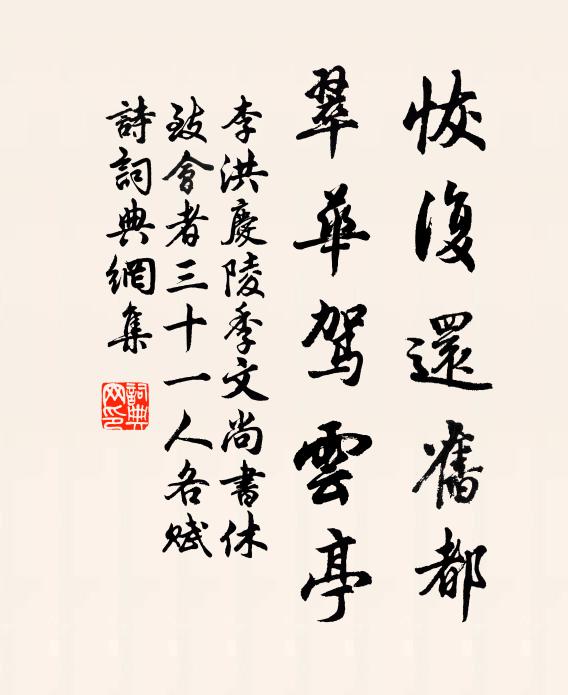 恢復還舊都
翠華駕雲亭
李洪慶陵季文尚書休
致會者三十一人各賦
詩詞典網集
詞典网印